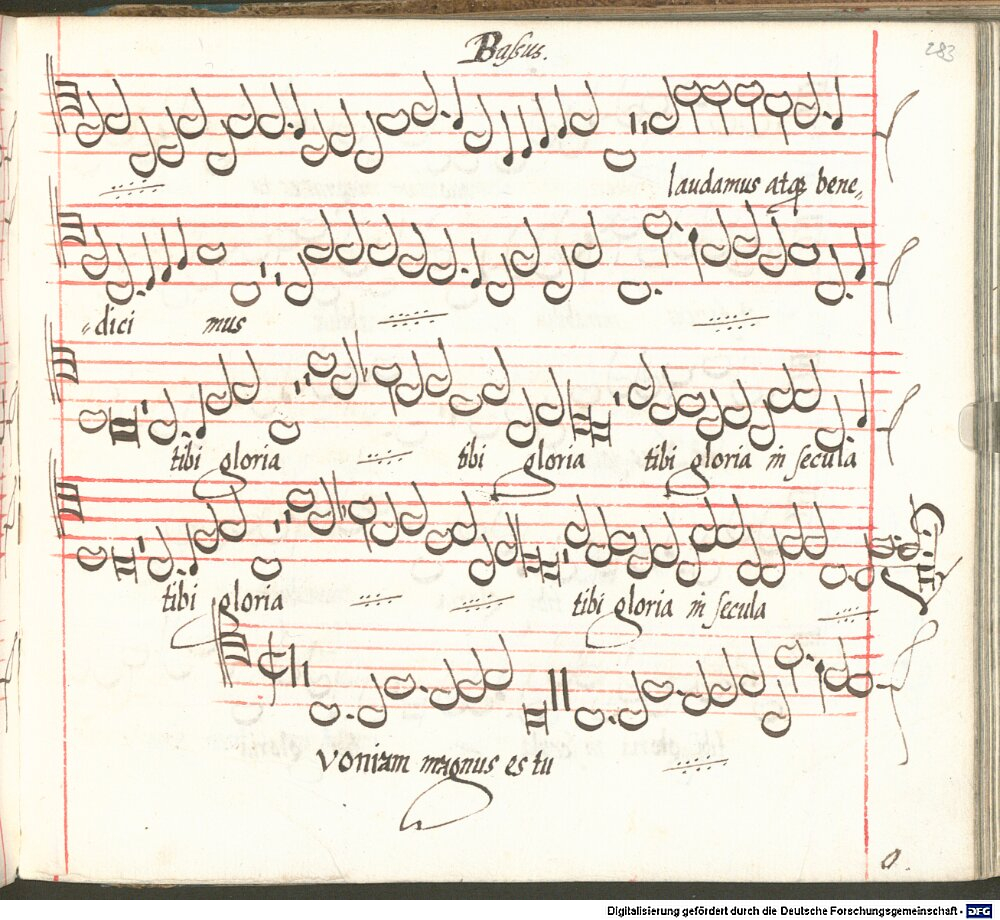 Bassus.
283
laudamus atqꝫ bene„
„dici mus
tibi gloria tibi gloria tibi gloria in secula
tibi gloria tibi gloria in secula
voniam magnus es tu
Digitalisierung gefördert durch die Deutsche Forschungsgemeinschaft - DFG